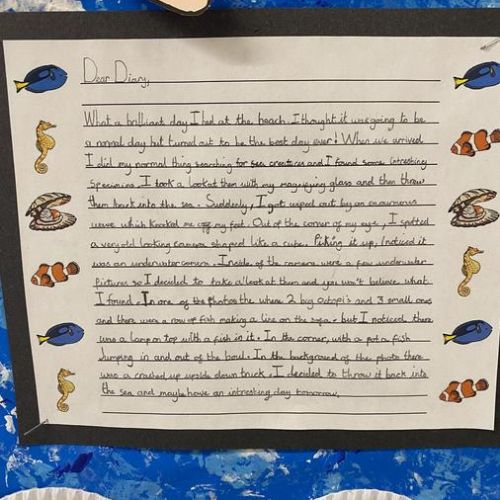 Dear Diary,
What a brilliant day I had at the beach. I thought it was going to be
a normal day but turned out to be the best day ever! When we arrived
I did my normal thing searching for sea creatures and I found some intreshing
Specimins. I took a look at them with my magnifying glass and then threw
them back into the sea. Suddenly, I got wiped out by an enourmous
wave which knocked me off my feet. Out of the corner of my eye, I spotted
a very old looking camera shaped like a cube. Picking it up, I noticed it
was an underwater camera. Inside of the camera were a few underwater
pictures so I decided to take a look at them and you won't believe what
I found. In one of the photos the where 2 big octopi's and 3 small ones
and there were a row of fish making a line on the sofa. but I noticed there
was a lamp on top with a fish in it. In the corner, with a pot a fish
Jumping in and out of the bowl. In the background of the photo there
was a crashed up upside down truck. I decided to throw it back into
the sea and maybe have an intreshing day tomorrow.